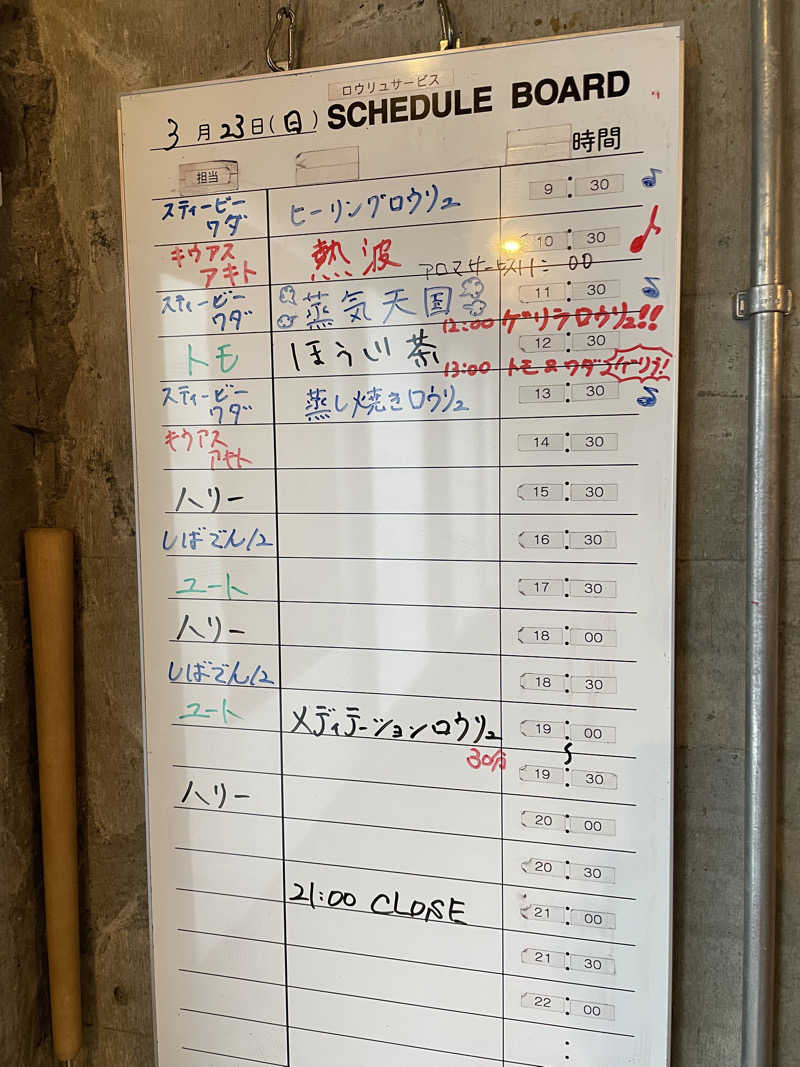 ロウリュサービス
3月23日(日) SCHEDULE BOARD
担当 時間
スティービーワダ ヒーリングロウリュ 9:30 ♪
キウアスアキト 熱波 10:30 ♪
11:00
スティービーワダ 蒸気天国 11:30 ♪
12:00 ゲリラロウリュ!!
トモ ほうじ茶 12:30
13:00 トモ&ワダ ゲリラ!
スティービーワダ 蒸し焼きロウリュ 13:30 ♪
キウアスアキト 14:30
ハリー 15:30
しばでん12 16:30
ユート 17:30
ハリー 18:00
しばでん12 18:30
ユート メディテーションロウリュ 19:00
30分 〜
19:30
ハリー 20:00
20:30
21:00 CLOSE 21:00
21:30
22:00
: